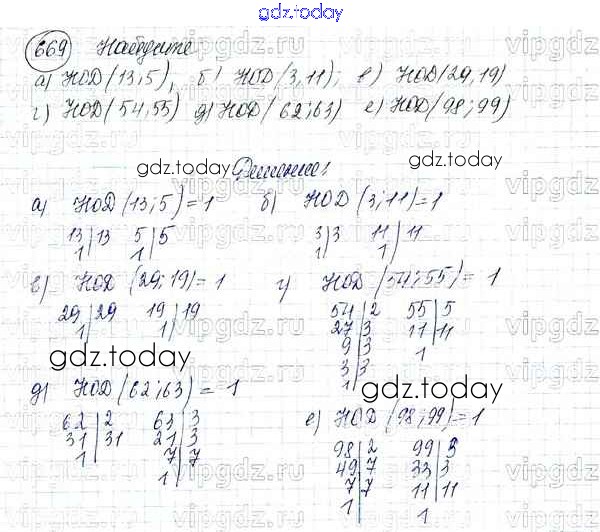 gdz.today
669 Найдите
а) НОД(13,5), б) НОД(3,11); в) НОД(29,19)
г) НОД(54,55) д) НОД(62;63) е) НОД(98;99)
gdz.today
gdz.today
Решение:
а) НОД(13;5)=1 б) НОД(3;11)=1
13|13 5|5 3|3 11|11
1| 1| 1| 1|
в) НОД(29;19)=1 г) НОД(54;55)=1
29|29 19|19 54|2 55|5
1| 1| 27|3 11|11
9|3 1
3|3
1|
gdz.today
gdz.today
д) НОД(62;63)=1
62|2 63|3
31|31 21|3
1| 7|7
1|
е) НОД(98;99)=1
98|2 99|3
49|7 33|3
7|7 11|11
1| 1|
vipgdz.ru